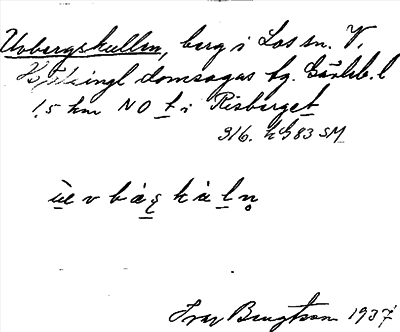 Uvbergskullen, berg i Los sn. V.
Hälsingl domsagas tg. Gävleb. l
1,5 km NO t i Risberget
316. h G 83 SM
ù e v b á ȩ k à l n̥
Ivar Bengtsson 1937